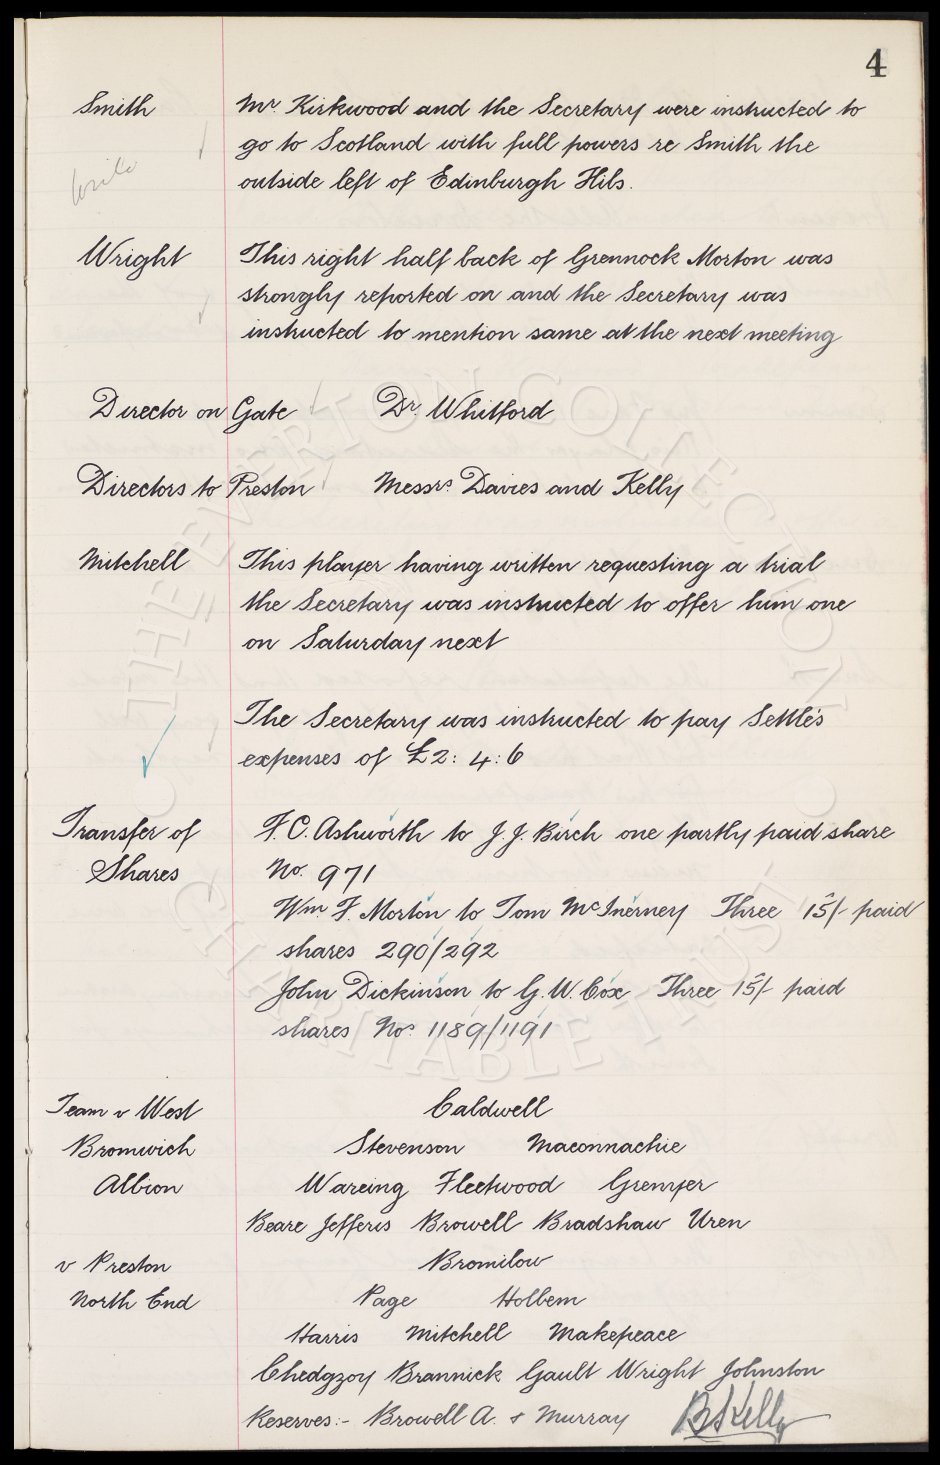 4
Smith Mr. Kirkwood and the Secretary were instructed to
go to Scotland with full powers re Smith the
write outside left of Edinburgh Hibs.
Wright This right half back of Grennock Morton was
strongly reported on and the Secretary was
instructed to mention same at the next meeting
Director on Gate Dr. Whitford
Directors to Preston Messrs. Davies and Kelly
Mitchell This player having written requesting a trial
the Secretary was instructed to offer him one
on Saturday next
The Secretary was instructed to pay Settle's
expenses of £2:4:6
Transfer of F. C. Ashworth to J. J. Birch one partly paid share
Shares No. 971
Wm. F. Morton to Tom McInerney Three 15/- paid
shares 290/292
John Dickinson to G. W. Cox Three 15/- paid
shares Nos. 1189/1191
Team v West Caldwell
Bromwich Stevenson Maconnachie
Albion Wareing Fleetwood Grenyer
Beare Jefferis Browell Bradshaw Uren
v Preston Bromilow
North End Page Holbem
Harris Mitchell Makepeace
Chedgzoy Brannick Gault Wright Johnston
Reserves:- Browell A. & Murray B Kelly
THE EVERTON COLLECTION
CHARITABLE TRUST